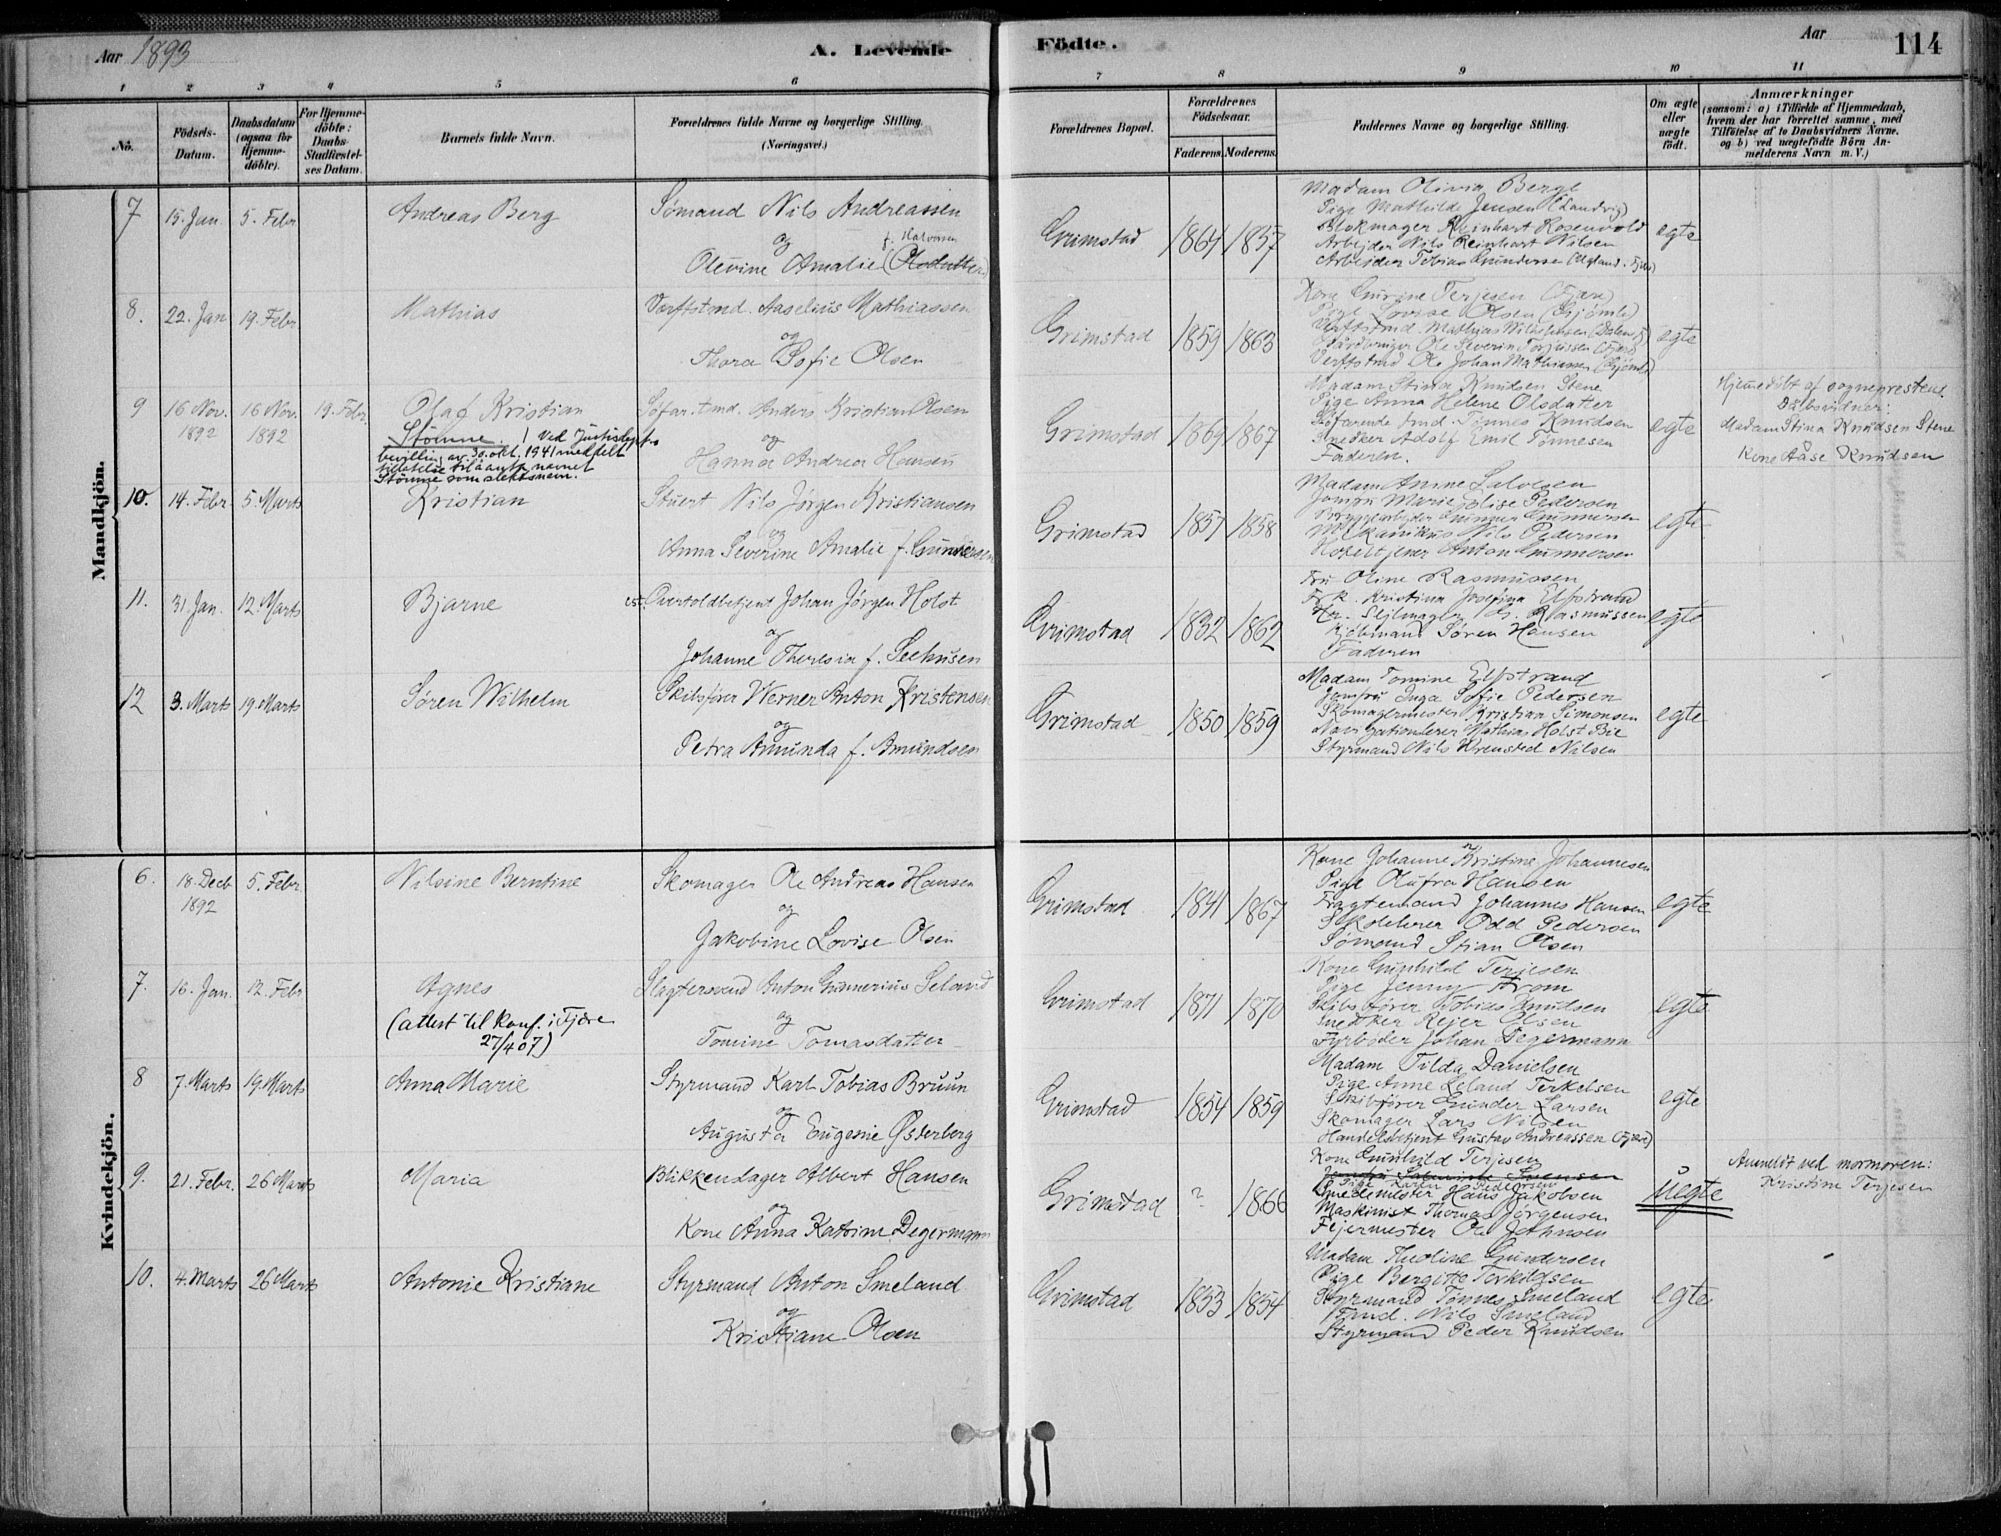 Aar 1893
A. Levende
Födte.
Aar
114
1 2 3 4 5 6 7 8 9 10 11
No.
Födsels-
Datum.
Daabsdatum
(ogsaa for
Hjemme-
döbte).
For Hjemme-
döbte:
Daabs-
Stadfæstel-
ses Datum.
Barnets fulde Navn.
Forældrenes fulde Navne og borgerlige Stilling.
(Næringsvei.)
Forældrenes Bopæl.
Forældrenes
Födselsaar.
Faderens. Moderens.
Faddernes Navne og borgerlige Stilling.
Om ægte
eller
uægte
födt.
Anmærkninger
(saasom: a) i Tilfælde af Hjemmedaab,
hvem der har forrettet samme, med
Tilföielse af to Daabsvidners Navne.
og b) ved uægtefödte Börn An-
melderens Navn m. V.)
Mandkjön.
7 15. Jan. 5. Febr Andreas Berg
Sømand Nils Andreassen
og
f. Halvorsen
Olevine Amalie (Olsdatter)
Grimstad 1864 1857
Madam Olivia Berge
Pige Mathilde Jensen (Landvig)
Blokmager Reinhart Rosenvold
Arbejder Nils Reinhart Nilsen
Arbejder Tobias Gundersen
egte
8. 22. Jan 19. Febr. Mathias
Verftstmd. Aaselius Mathiassen
og
Thora Sofie Olsen
Grimstad 1859 1863
Kone Gurine Terjesen (Fjære)
Pige Lovise Olsen (Gjömle)
Verftstmd. Mathias
Gårdbruger Ole Severin Terjussen (Fjære)
Verftstmd Ole Johan Mathiassen (Gjömle)
egte
9 16 Nov. 1892 16 Nov. 1892 19. Febr. Olaf Kristian
Stømne. / Ved Justisdepts
bevilling av 30. okt. 1941 meddelt
tillatelse til å anta navnet
Stømne som slektsnavn.
Søfar. tmd. Anders Kristian Olsen
og
Hanna Andrea Hansen
Grimstad 1869 1867
Madam Stina Knudsen Stene
Pige Anna Helene Olsdatter
Søfarende tmd. Tønnes Knudsen
Snedker Adolf Emil Tønnesen
Faderen.
egte
Hjemedöbt af sognepresten.
Dåbsvidner:
Madam Stina Knudsen Stene
&
Kone Åase Knudsen
10. 14. Febr. 5. Marts Kristian
Stuert Nils Jørgen Kristiansen
og
Anna Severine Amalie f. Gundersen
Grimstad 1857 1858
Madam Anine Salvesen
Jomfru Marie Elise Pedersen
Bryggearbejder Gunner Gunnersen
Mekanikus Nils Pedersen
Hoteltjener Anton Gunnersen
egte
11. 31. Jan. 12. Marts Bjarne
cst. Overtoldbetjent Johan Jørgen Holst
og
Johanne Theresia f. Seehusen
Grimstad 1832 1862
Fru Oline Rasmussen
Frk. Kristina Josefina Elfstrand
Hr. Sejlmager G. Rasmussen
Kjöbmand Søren Hansen
Faderen
egte
12 3. Marts 19. Marts Søren Wilhelm
Skibsfører Werner Anton Kristensen
og
Petra Amunda f. Amundsen
Grimstad 1850 1859
Madam Tomine Elfstrand
Jomfru Inga Sofie Pedersen
Skomagermester Kristian Simonsen
Navigationslærer Mathias Holst Bie
Styrmand Nils Nilsen
egte
Kvindekjön.
6. 18. Decb 1892 5. Febr. Nilsine Berntine
Skomager Ole Andreas Hansen
og
Jakobine Lovise Olsen
Grimstad 1841 1867
Kone Johanne Kristine Johannesen
Pige Olufra Hansen
Fragtemand Johannes Hansen
Skolelærer Odd Pedersen
Sømand Stian Olsen
egte
7. 16. Jan. 12. Febr Agnes
(attest til konf. i Fjære
27/4 07)
Slagtersvend Anton Gunnerius Seland
og
Tomine Tomasdatter
Grimstad 1871 1870
Kone Gunhild Terjesen
Pige Jenny From
Skibsfører Tobias Knudsen
Snedker Rejer Olsen
Fyrbøder Johan Degermann
egte
8 7. Marts 19. Marts Anna Marie
Styrmand Karl Tobias Bruun
og
Augusta Eugenie Østerberg
Grimstad 1854 1859
Madam Tilda Danielsen
Pige Anne Leland Terkelsen
Skibsfører Gunder Larsen
Skomager Lars Nilsen
Handelsbetjent Gustav Andreassen (Fjære)
egte
9. 21. Febr. 26 Marts Maria
Blikkenslager Albert Hansen
og
Kone Anna Katrine Degermann
Grimstad ? 1866
Kone Gunhild Terjesen
Pige Karen Pedersen
Smedemester Hans Jakobsen
Maskinist Thomas Jørgensen
Fejermester Ole Johnsen
uegte
Anmeldt ved mormoren:
Kristine Terjesen
10. 4. Marts 26 Marts Antonie Kristiane
Styrmand Anton Smeland
og
Kristiane Olsen
Grimstad 1853 1854
Madam Theoline Gundersen
Pige Bergitte Terkildsen
Styrmand Tønnes Smeland
Tmd. Nils Smeland
Styrmand Peder Knudsen
egte